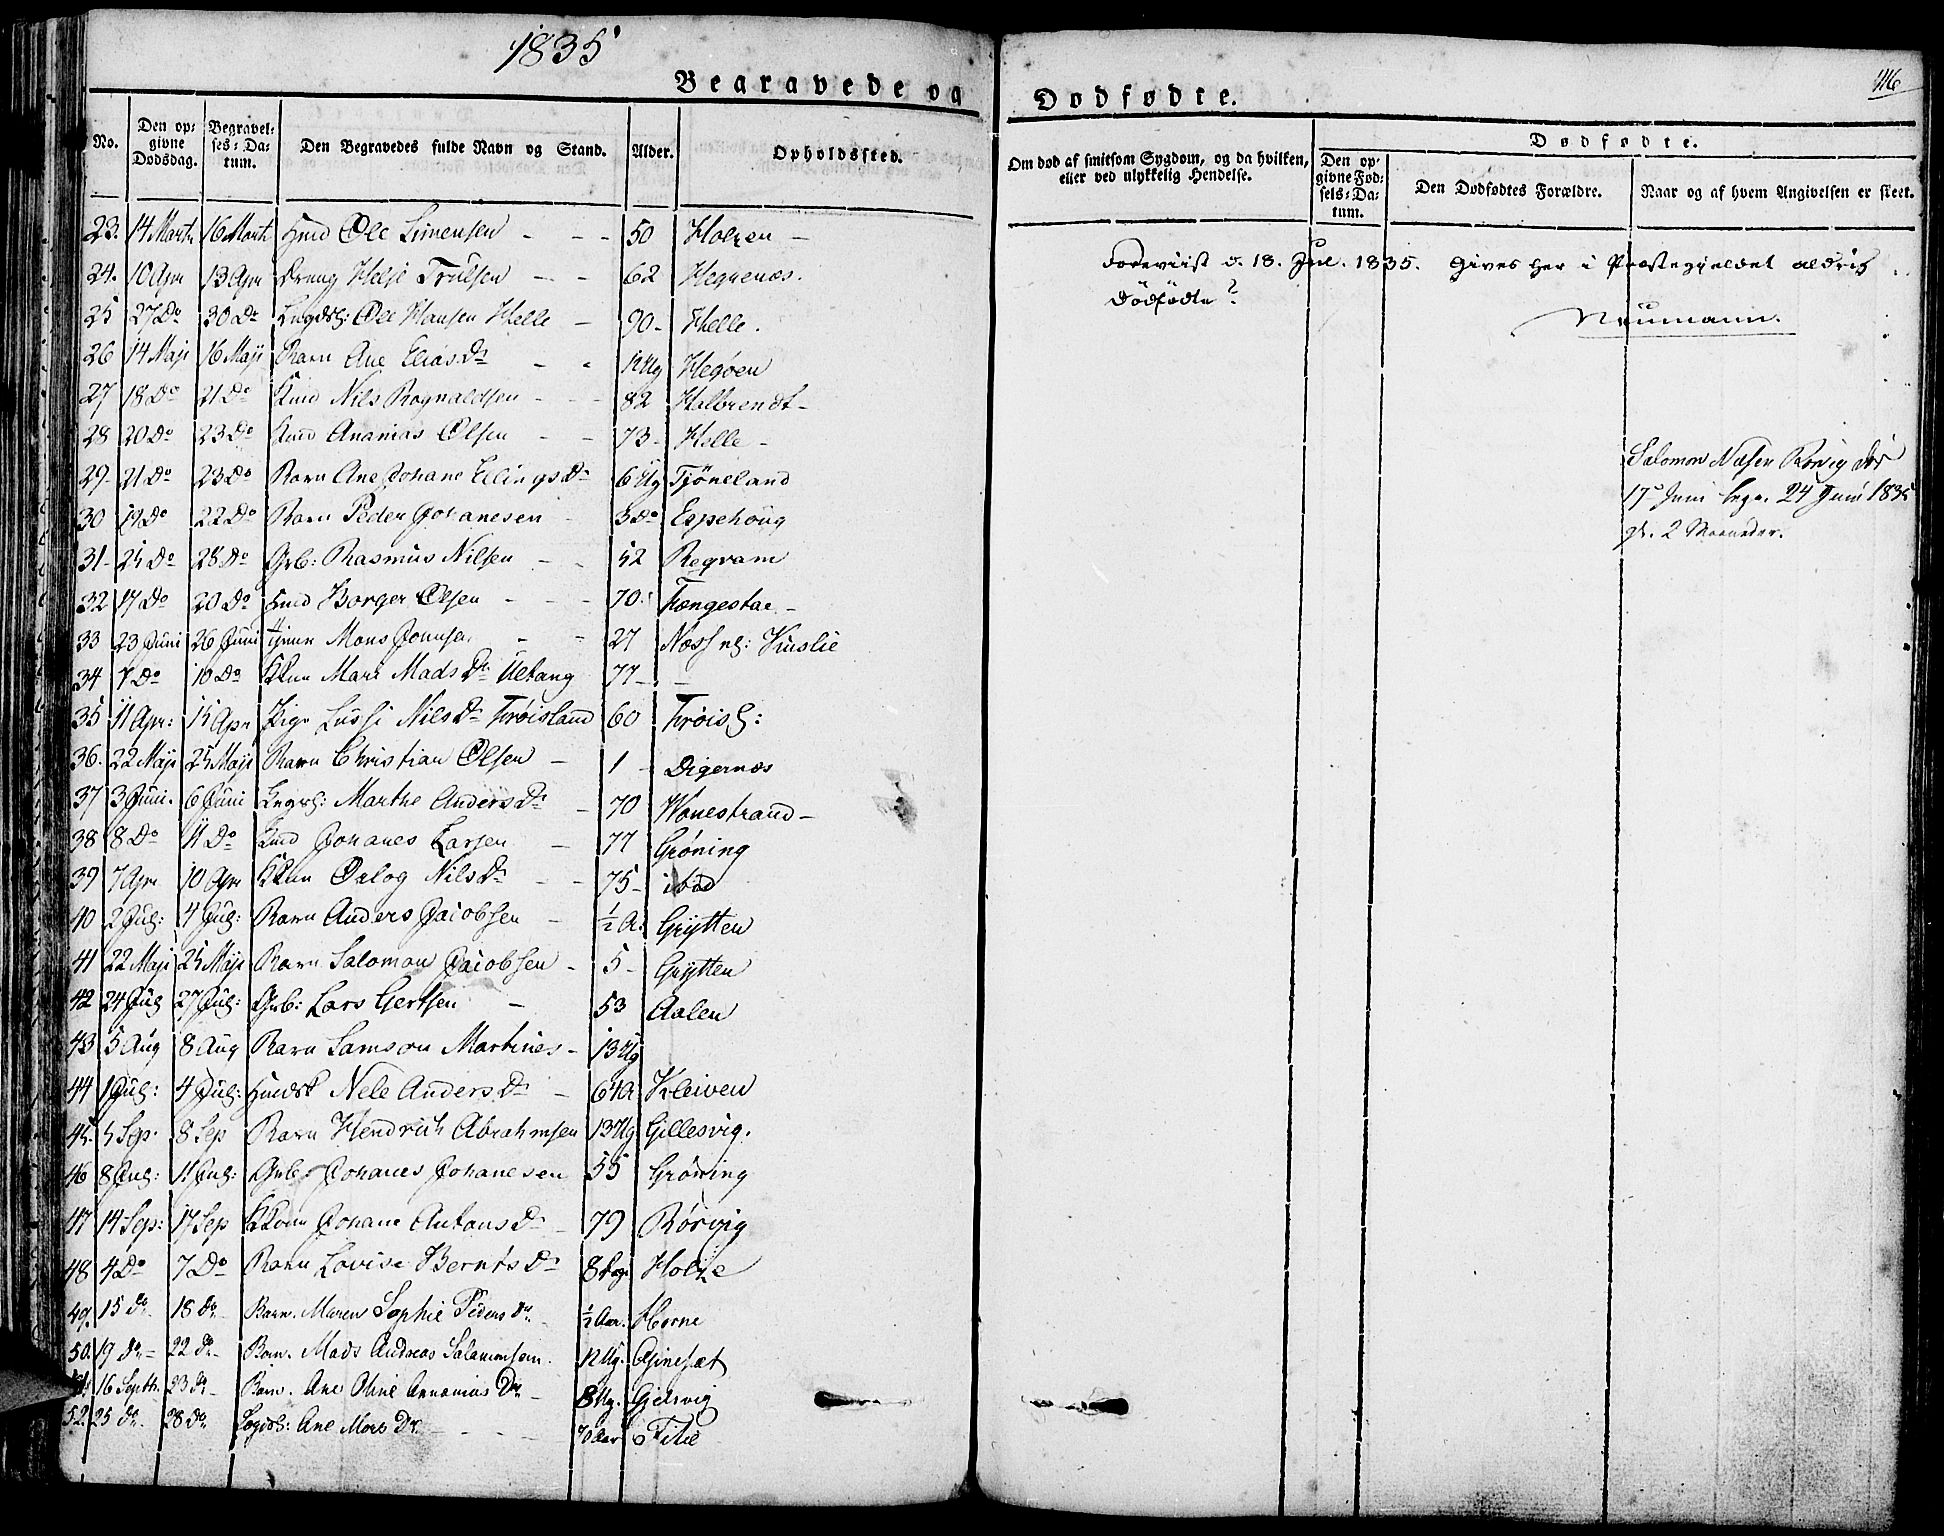 1835
Begravede og
No. Den opgivne Dødsdag. Begravelses-Datum. Den Begravedes fulde Navn og Stand. Alder. Opholdssted.
23. 14 Marti 16 Marti Hmd Ole Simensen - - - 50 Holzen -
24. 10 Apr 13 Apr Dreng Helje Trulsen - - 62 Hegrenæs.
25 27 Do 30 Do Lægdsl: Ole Hansen Helle - 90 - Helle.
26 14 Maji 16 Maji Barn Ane Elias Dr - - 12 Ug Hegøen
27 18 Do 21 Do Kmd Nils Rognaldsen - - - 82 Halbrendt -
28 20 Do 23 Do Kmd Ananias Olsen - - 73 - Helle -
29 - 21 Do 23 Do Barn Ane Johane Ellings Dr 6 Ug Tjöneland
30 19 Do 22 Do Barn Peder Johanesen - 3 Do Espehöug
31 - 25 Do 28 Do Grb: Rasmus Nilsen - - 52 Regvam
32 17 Do 20 Do Hmd Borger Olsen - - - 70 Fængestae -
33 23 Juni 26 Juni Tjener Mons Jonnsen - - 27 Næss
34 7 Do 10 Do KKone Mari Mads Dr Uetang 77 - -
35 11 Apr: 15 Apr Pige Lussi Nils Dr Frøisland 60 Frøisl:
36. 22 Maji 25 Maji Barn Christian Olsen - 1 - Digernæs
37 3 Juni. 6 Juni Lægdsl: Marthe Anders Dr - 70 Wonestrand -
38 8 Do 11 Do Kmd Johanes Larsen - 77 Grøning
39 7 Apr 10 Apr KKone Oalog Nils Dr - - 75 - ibid
40 2 Jul: 4 Jul: Barn Anders Jacobsen - ½ A. Grytten
41 22 Maji 25 Maji Barn Salomon Jacobsen - 5 - Grytten
42 24 Jul 27 Jul: Grb: Lars Gertsen - 53 Aalen
43 5 Aug 8 Aug Barn Samson Martines - 13 Ug
44 1 Jul: 4 Jul: Huusk Nele Anders Dr - 64 Kleiven
45. 5 Sep. 8 Sep Barn Hendrich Abrahmsen 13 Ug Gillesvig.
46 8 Jul: 11 Jul: Grb: Johanes Johanesen 55 Grøning
47 14 Sep: 17 Sep KKone Johane Antons Dr - 79 Rørvig
48 4 Do 7 Do Barn Lovise Bernts Dr 8 Dage Holze
49. 15 do - 18 do - Barn. Maren Sophie Peders Dr. - ½ Aar. Horne
50. 19 do - 22 do - Barn. Mads Andreas Salamonsen. 12 Ug.
51. 16 Septb. 23 do - Barn. Ane Oline Annanias Dr - 8 Ug. Gjelsvig
52. 25 do. 28 do. Lægdsl: Ane Mons Dr. - - - - 70 Aar Fitie
116
Dødfødte.
Om død af smitsom Sygdom, og da hvilken, eller ved ulykkelig Hendelse.
Dødfødte.
Den opgivne Fødsels-Datum. Den Dødfødtes Forældre. Naar og af hvem Angivelsen er skeet.
Foreviist d. 18. Jul. 1835. Gives her i Præstegjeldet aldrig
dödfödte?
Neumann.
Salomon Nilsen Rørvig død
17 Juni begr. 24 Juni 1835
gl. 2 Maaneder.